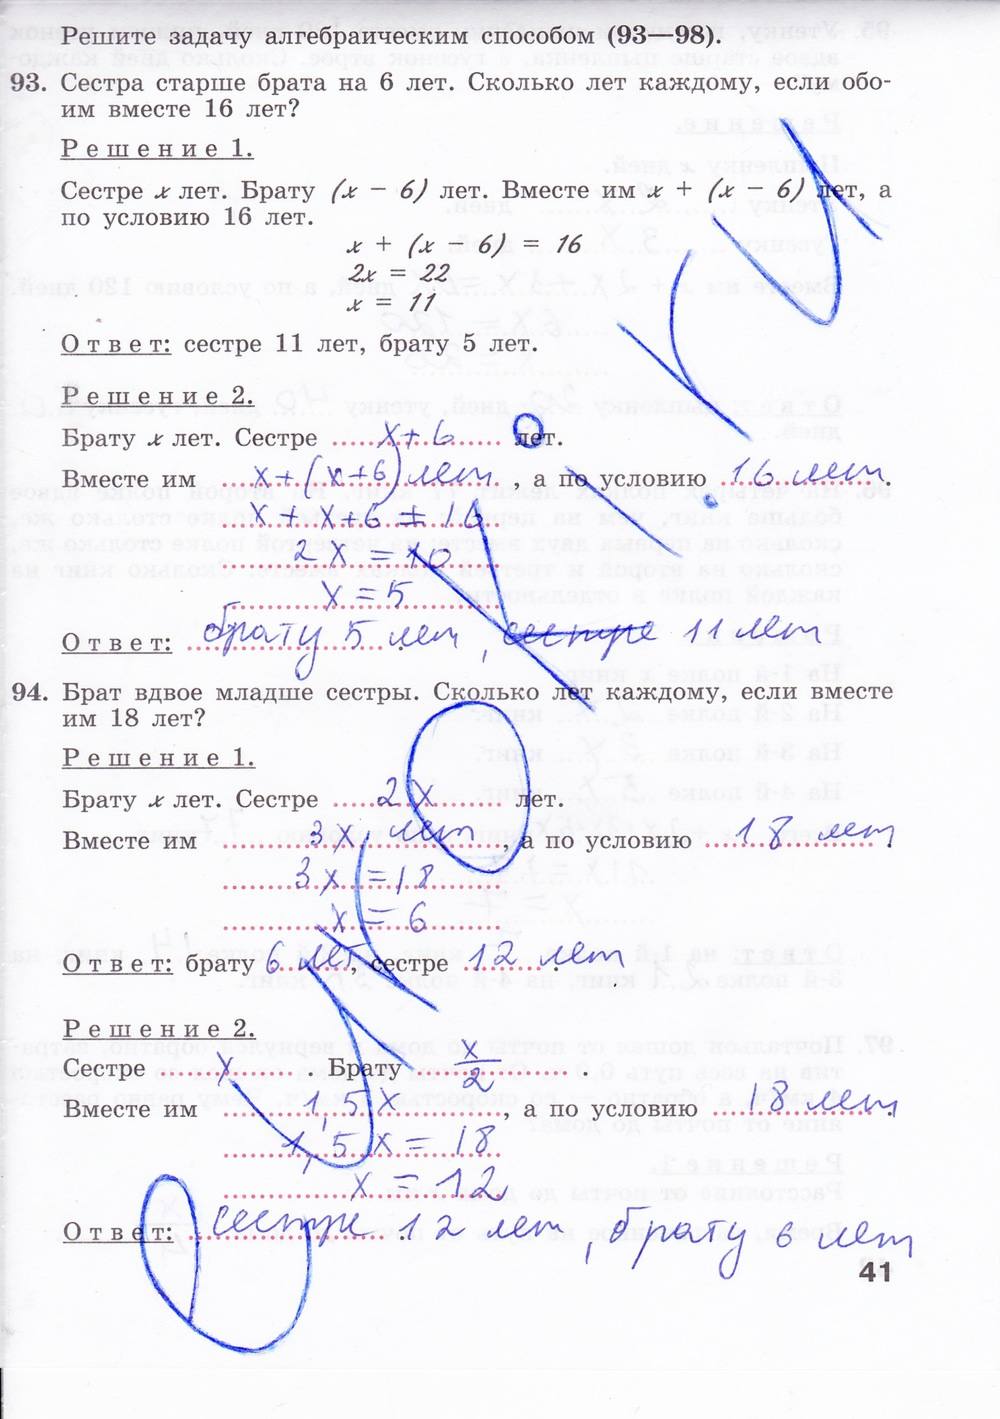 Решите задачу алгебраическим способом (93—98).
93. Сестра старше брата на 6 лет. Сколько лет каждому, если обо-
им вместе 16 лет?
Решение 1.
Сестре x лет. Брату (x − 6) лет. Вместе им x + (x − 6) лет, а
по условию 16 лет.
x + (x − 6) = 16
2x = 22
x = 11
Ответ: сестре 11 лет, брату 5 лет.
Решение 2.
Брату x лет. Сестре x+6 лет.
Вместе им x+(x+6) лет, а по условию 16 лет.
x+x+6 = 16
2x = 10
x = 5
Ответ: брату 5 лет, сестре 11 лет
94. Брат вдвое младше сестры. Сколько лет каждому, если вместе
им 18 лет?
Решение 1.
Брату x лет. Сестре 2x лет.
Вместе им 3x лет, а по условию 18 лет.
3x = 18
x = 6
Ответ: брату 6 лет сестре 12 лет
Решение 2.
Сестре x. Брату x/2.
Вместе им 1,5x, а по условию 18 лет.
1,5x = 18
x = 12
Ответ: сестре 12 лет, брату 6 лет
41